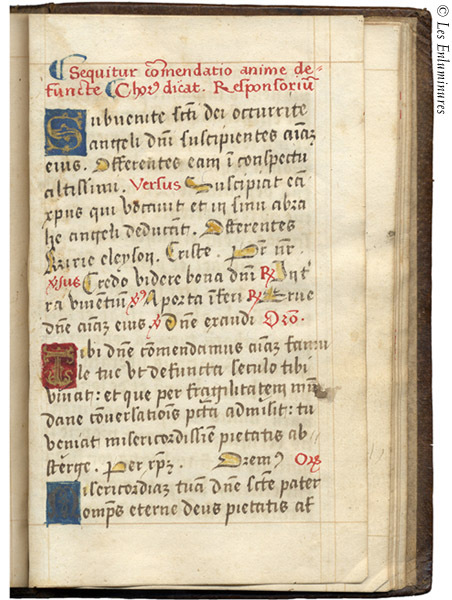 © Les Enluminures
¶ Sequitur cōmendatio anime de-
functe ¶ Chorꝰ dicat. Responsoriū
Subuenite sctī dei occurrite
angeli dnī suscipientes aīaʒ
eius. Offerentes eam ī conspectu
altissimi. Versus Suscipiat te
xpus qui vocauit et in sinu abra
he angeli deducant. Offerentes
Kyrie eleyson. Criste. Por nr̄.
v̄sus Credo videre bona dnī R̷ In t
ra viuentiū v̷ A porta īferi R̷ Erue
dnē aīaʒ eius v̷ Dnē exaudi Orō.
Tibi dnē cōmendamus aīaʒ famu
le tue vt defuncta seculo tibi
viuat: et que per fragilitatem mū
dane conuersationis pctā admisit: tu
veniat misericordissīe pietatis ab-
sterge. Per xpʒ. Oremꝰ Orō
Misericordiaʒ tuā dnē sctē pater
omps eterne deus pietatis aff